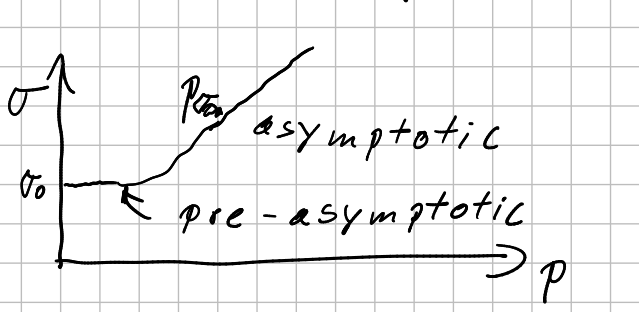 σ
pσ₀
asymptotic
σ₀
pre-asymptotic
p